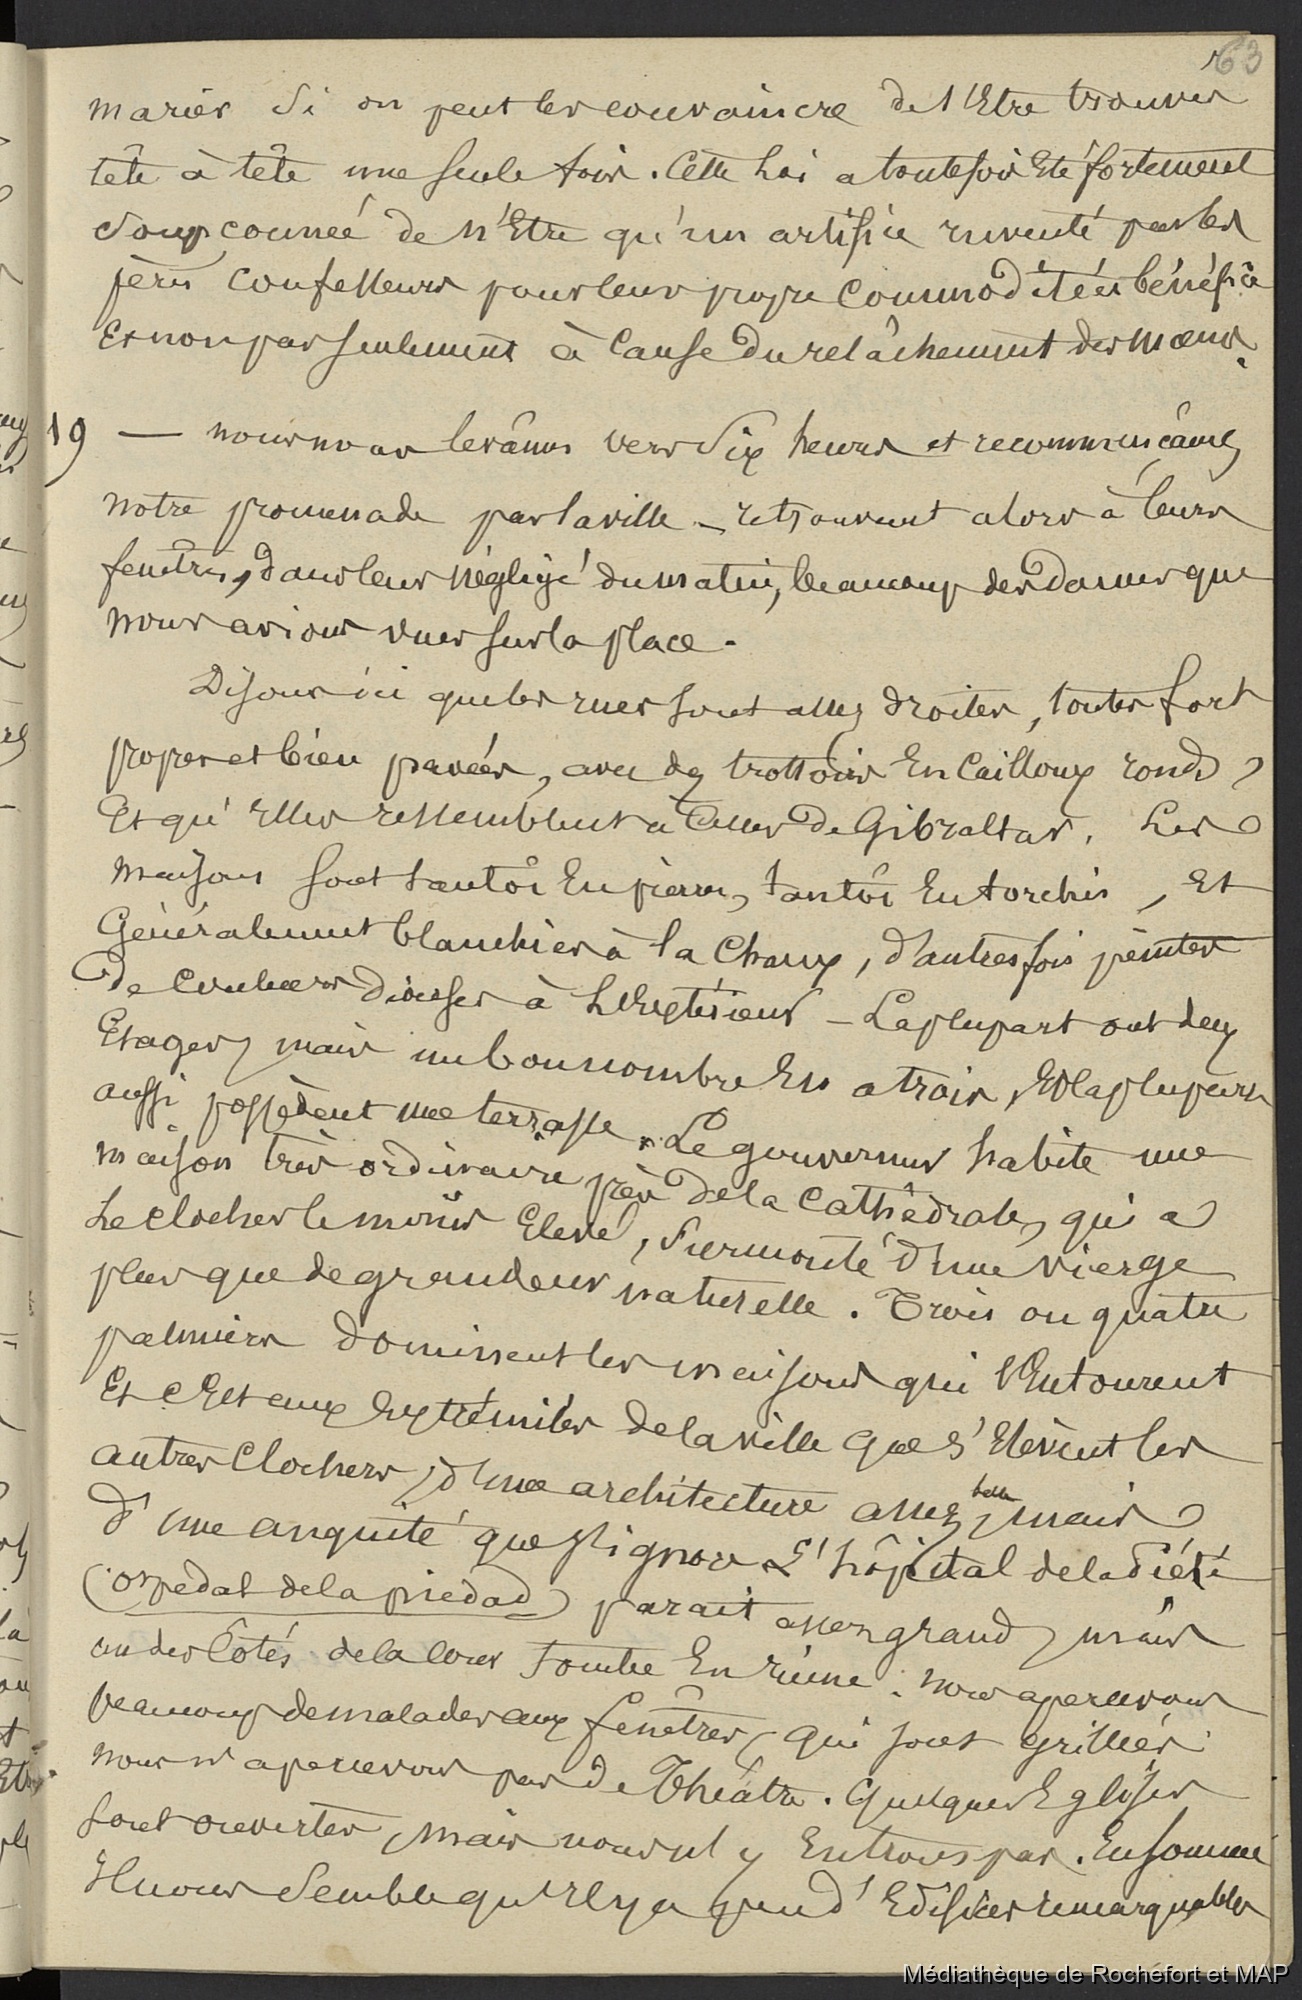 63
mariés si on peut les convaincre de s'être trouvés
tête à tête une seule fois. Cette loi a toutefois été fortement
soupçonnée de n'être qu'un artifice inventé par les
pères confesseurs pour leur propre commodité et bénéfice
Et non pas seulement à cause du relâchement des mœurs.
19 — nous nous levâmes vers six heures et recommençâmes
notre promenade par la ville — retrouvant alors à leurs
fenêtres, dans leur négligé du matin, beaucoup des dames que
nous avions vues sur la place.
Disons ici que les rues sont assez droites, toutes fort
propres et bien pavées, avec des trottoirs En Cailloux ronds,
Et qu'elles ressemblent à celles de Gibraltar. Les
maisons sont tantôt En pierres, tantôt En torchis, Et
Généralement blanchies à la Chaux, d'autres fois peintes
de couleurs diverses à l'Extérieur — La plupart ont deux
Etages, mais un bon nombre En a trois, Et la plupart
aussi possèdent une terrasse. Le gouverneur habite une
maison très ordinaire près de la Cathédrale, qui a
Le clocher le moins Elevé, surmonté d'une vierge
plus que de grandeur naturelle. Trois ou quatre
palmiers dominent les maisons qui l'Entourent
Et c'Est aux Extrémités de la ville que s'Elèvent les
autres Clochers, d'une architecture assez belle, mais
d'une anquité que j'ignore L'hôpital de la Piété
(ospedal de la piedad) parait assez grand, mais
un des Côtés de la cour tombe En ruine. Nous apercevons
beaucoup de malades aux fenêtres, qui sont grillées.
Nous n'apercevons pas de Théâtre. Quelques Eglises
sont ouvertes, mais nous n'y Entrons pas. En somme
Il nous semble qu'Il y a peu d'Edifices remarquables
Médiathèque de Rochefort et MAP